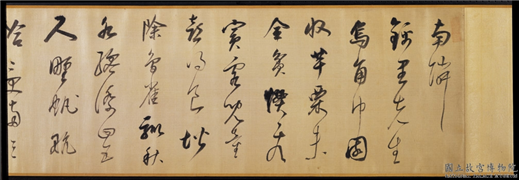 南鄰
錦里先生
烏角巾園
收芋栗未
全貧慣看
賓客兒童
喜得食堦
除鳥雀馴秋
水纔深四五
野航
恰受兩三
國立故宮博物院